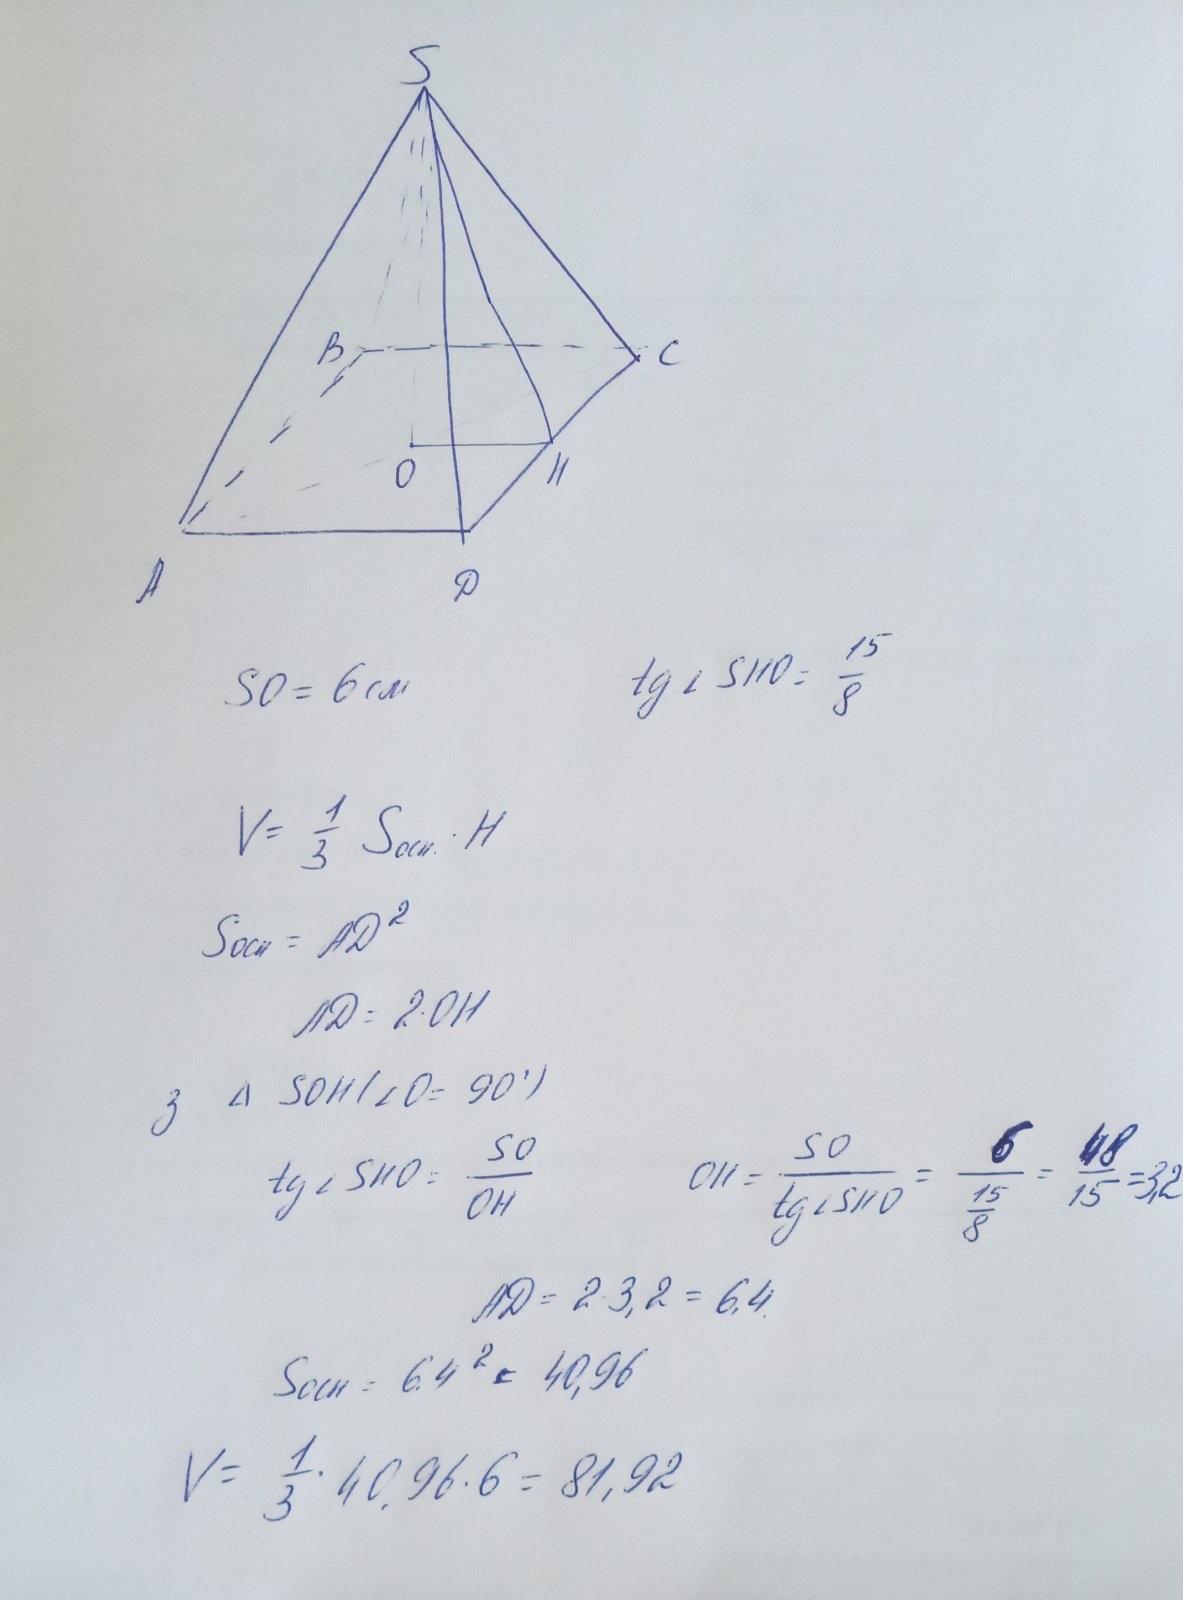 S
B
C
O
H
A
D
SO = 6 см
tg ∠ SHO = 15/8
V = 1/3 Sосн. · H
Sосн = AD²
AD = 2·OH
з Δ SOH (∠O = 90°)
tg ∠ SHO = SO/OH
OH = SO/tg∠SHO = 6/(15/8) = 48/15 = 3,2
AD = 2·3,2 = 6.4
Sосн = 6.4² = 40,96
V = 1/3 · 40,96 · 6 = 81,92